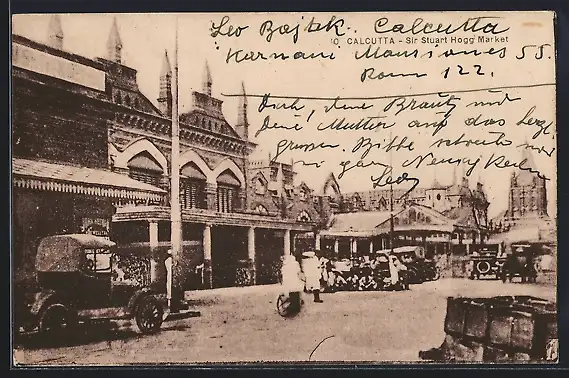 Leo Bajtek. Calcutta
10. CALCUTTA - Sir Stuart Hogg Market
Karnani Mansiones 55.
Room 122.
Dich, deine Braut, und
deine Mutter auf das herzl.
grüssen. Bitte schreibe mir
gar
Leo